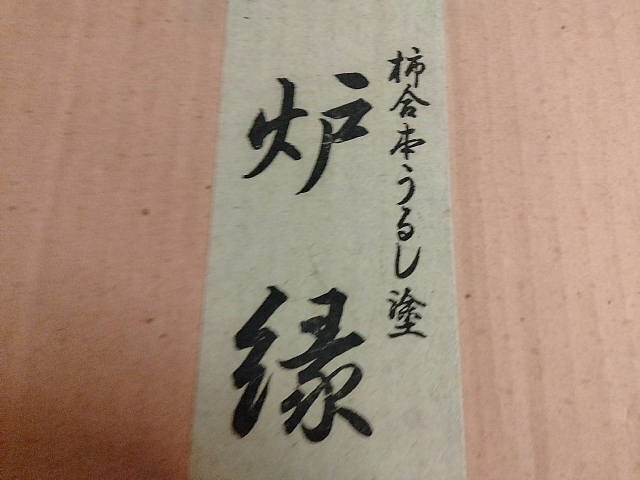 柿合本うるし塗
炉縁